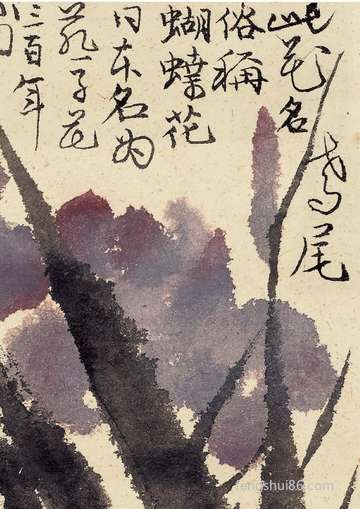 此花名
鸢尾
俗稱
蝴蝶花
日本名为
子花
三百年
fengshui86.com